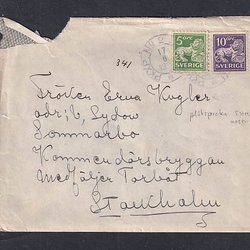 5 ÖRE SVERIGE
10 ÖRE SVERIGE
17
341
Fröken Erna Kugler
adr; b, Sydow
Sommarbo
Kommendörsbryggan
medföljer Torbåt
Stockholm
5